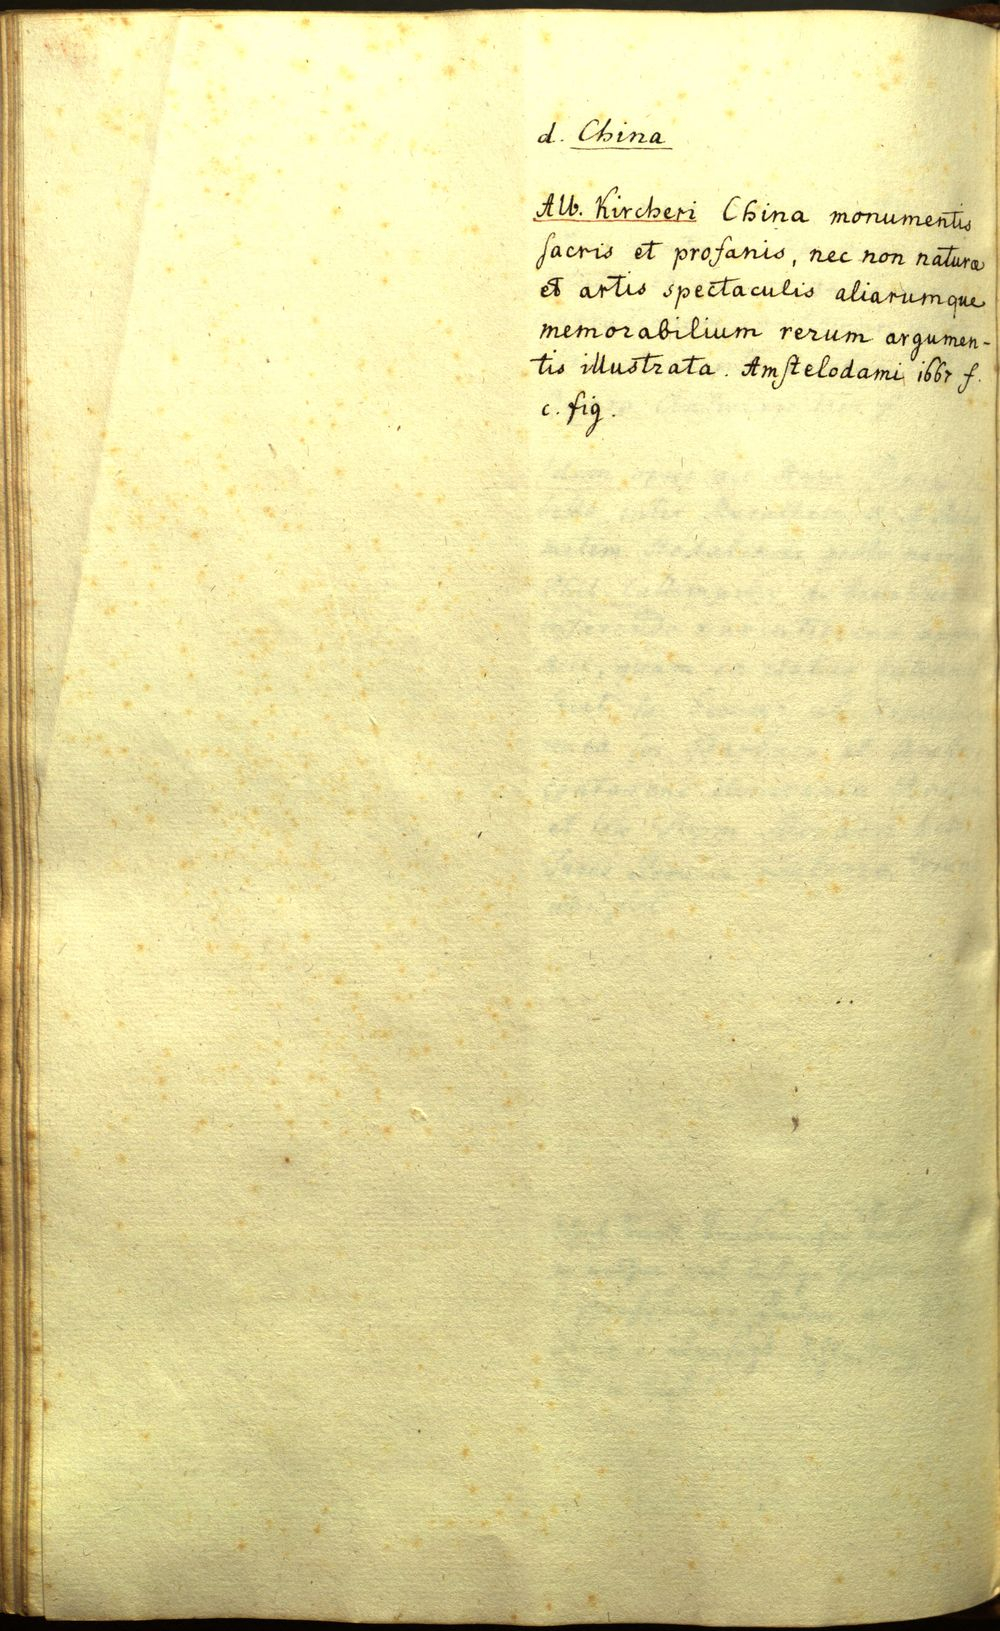 d. China
Alb. Kircheri China monumentis
sacris et profanis, nec non naturæ
et artis spectaculis aliarumque
memorabilium rerum argumen-
tis illustrata. Amstelodami 1667 f.
c. fig.